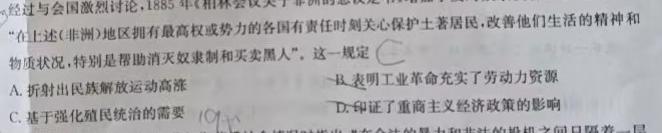 经过与会国激烈讨论,1885年《柏林会议关于非洲的
"在上述(非洲)地区拥有最高权或势力的各国有责任时刻关心保护土著居民,改善他们生活的精神和
物质状况,特别是帮助消灭奴隶制和买卖黑人"。这一规定
A. 折射出民族解放运动高涨 B. 表明工业革命充实了劳动力资源
C. 基于强化殖民统治的需要 D. 印证了重商主义经济政策的影响